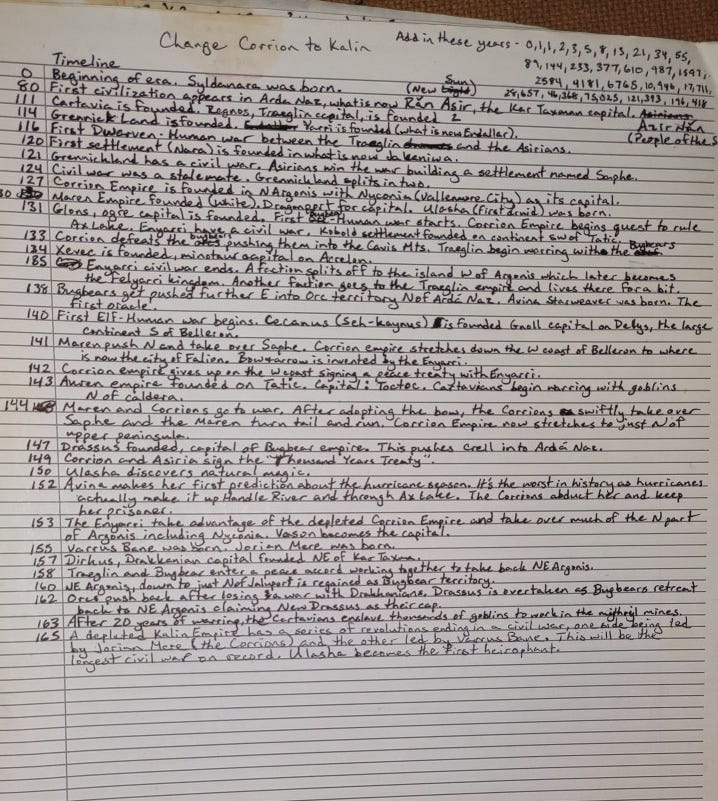 Change Corrion to Kalin
Add in these years - 0,1,1,2,3,5,8,13,21,34,55,
89,144,233,377,610,987,1597,
2584,4181,6765,10,946,17,711,
28,657,46,368,75,025,121,393,196,418
Timeline
0 Beginning of era. Syldanara was born. (New Sun)
80 First civilization appears in Arda Naz, what is now Rän Asir, the Kar Taxman capital.
Azir Nän
(People of the S
111 Cartavia is founded. Ragnos, Traeglin capital, is founded
114 Grennick Land is founded. Yarri is founded (what is now Endaller).
116 First Dwarven-Human war between the Traeglin and the Asirians.
120 First settlement (Nara) is founded in what is now Jakeniwa.
121 Grennickland has a civil war. Asirians win the war building a settlement named Saphe.
124 Civil war was a stalemate. Grennickland splits in two.
127 Corrion Empire is founded in N Argonis with Nyconia (Vallenmore City) as its capital.
130 Maren Empire founded (white). Dragonport for capital. Ulasha (first druid) was born.
131 Glons, ogre capital is founded. First Bugbear-Human war starts. Corrion Empire begins quest to rule
Ax Lake. Enyarri have a civil war. Kobold settlement founded on continent SW of Tatic.
133 Corrion defeats the bugbears pushing them into the Cavis Mts. Traeglin begin warring with the Bugbears
134 Kevec is founded, minotaur capital on Accelon.
135 Enyarri civil war ends. A faction splits off to the island W of Argonis which later becomes
the Felyarri kingdom. Another faction goes to the Traeglin empire and lives there for a bit.
138 Bugbears get pushed further E into Orc territory N of Ardá Naz. Avina Starweaver was born. The
first oracle.
140 First Elf-Human war begins. Cecanus (Seh-kaynus) is founded Gnoll capital on Delys, the large
continent S of Belleron.
141 Maren push N and take over Saphe. Corrion empire stretches down the W coast of Belleron to where
is now the city of Falien. Bow+arrow is invented by the Enyarri.
142 Corrion empire gives up on the W coast signing a peace treaty with Enyarri.
143 Auren empire founded on Tatic. Capital: Toctoc. Cartavians begin warring with goblins
N of caldera.
144 Maren and Corrions go to war. After adopting the bow, the Corrions swiftly take over
Saphe and the Maren turn tail and run. Corrion Empire now stretches to just N of
upper peninsula.
147 Drassus founded, capital of Bugbear empire. This pushes Crell into Ardá Naz.
149 Corrion and Asiria sign the "Thousand Years Treaty".
150 Ulasha discovers natural magic.
152 Avina makes her first prediction about the hurricane season. It's the worst in history as hurricanes
actually make it up Handle River and through Ax Lake. The Corrions abduct her and keep
her prisoner.
153 The Enyarri take advantage of the depleted Corrion Empire and take over much of the N part
of Argonis including Nyconia. Vason becomes the capital.
155 Varrus Bane was born. Jorian Mere was born.
157 Dirkus, Drakkenian capital founded NE of Kar Taxma.
158 Traeglin and Bugbear enter a peace accord working together to take back NE Argonis.
160 NE Argonis, down to just N of Jaluport is regained as Bugbear territory.
162 Orcs push back after losing a war with Drakkenians. Drassus is overtaken as Bugbears retreat
back to NE Argonis claiming New Drassus as their cap.
163 After 20 years of warring, the Cartavians enslave thousands of goblins to work in the mythryl mines.
165 A depleted Kalin Empire has a series of revolutions ending in a civil war, one side being led
by Jorian Mere (the Corrions) and the other led by Varrus Bane. This will be the
longest civil war on record. Ulasha becomes the first heirophant.